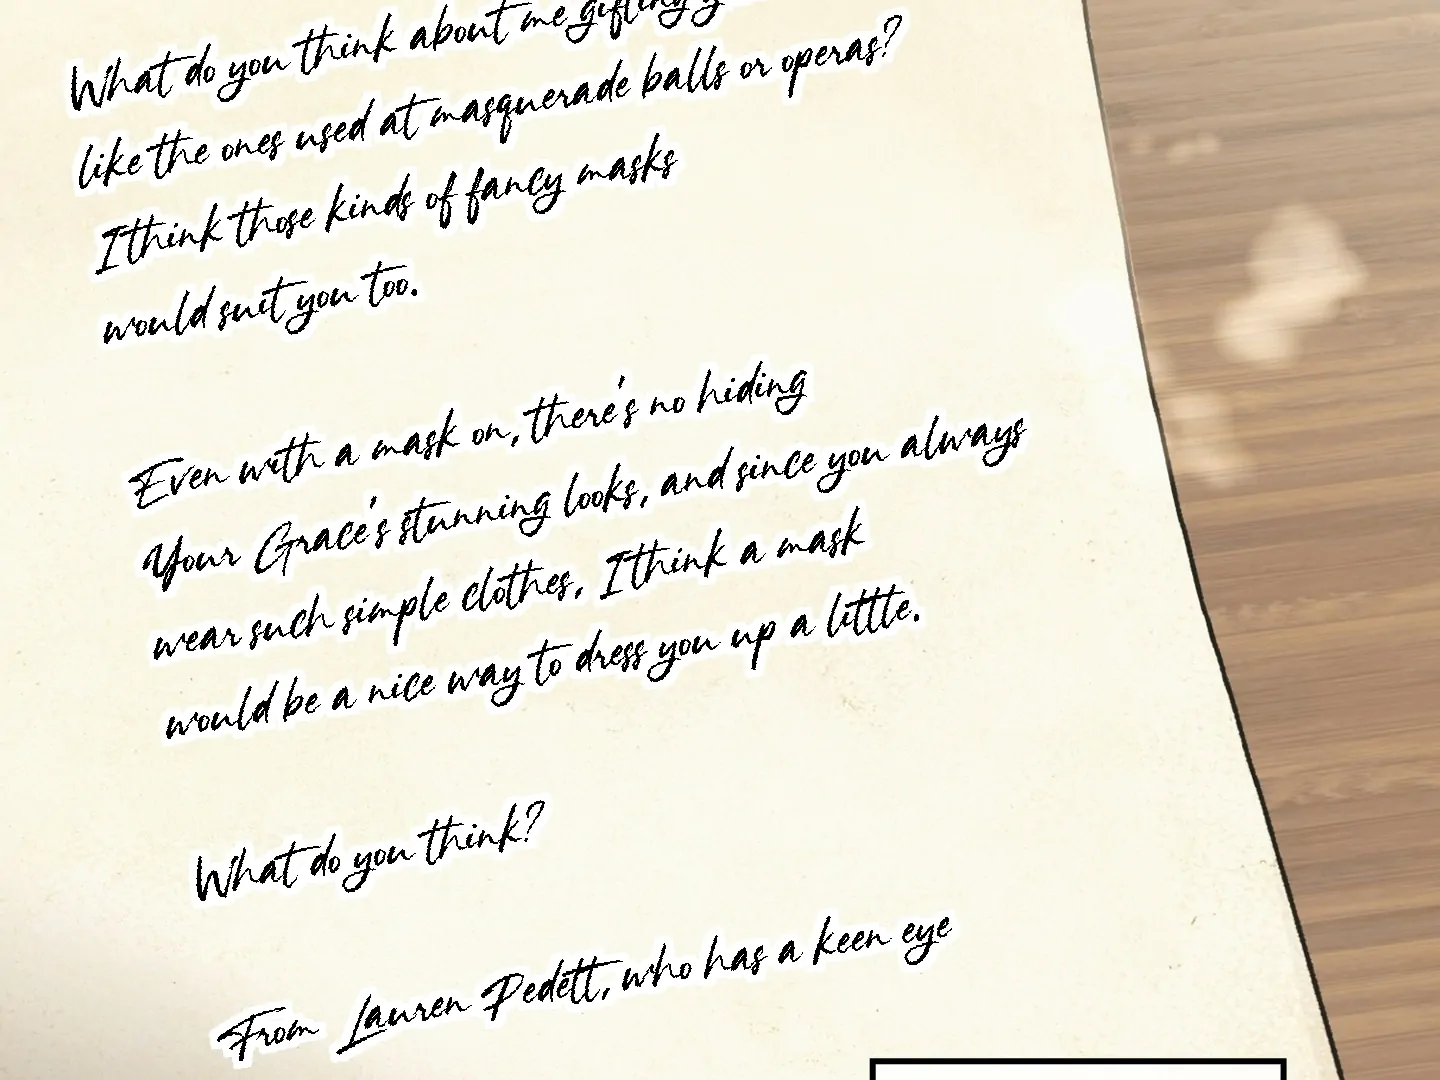 What do you think about me gifting
like the ones used at masquerade balls or operas?
I think those kinds of fancy masks
would suit you too.
Even with a mask on, there's no hiding
Your Grace's stunning looks, and since you always
wear such simple clothes, I think a mask
would be a nice way to dress you up a little.
What do you think?
From Lauren Pedett, who has a keen eye